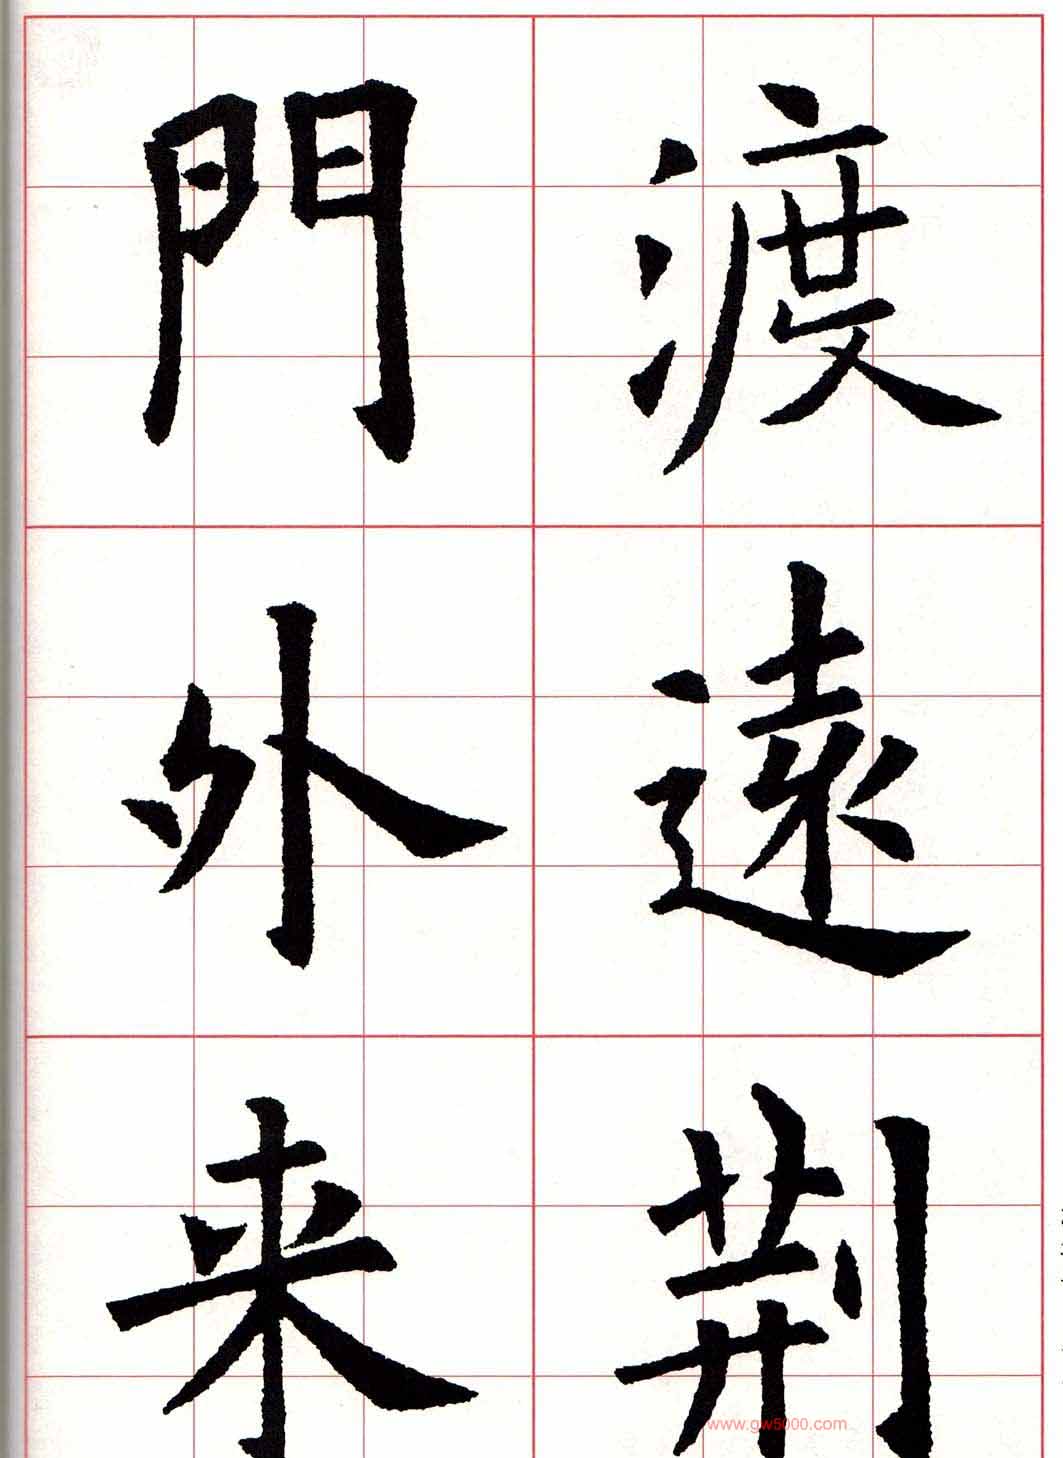 渡遠荊
門外来
www.gw5000.com